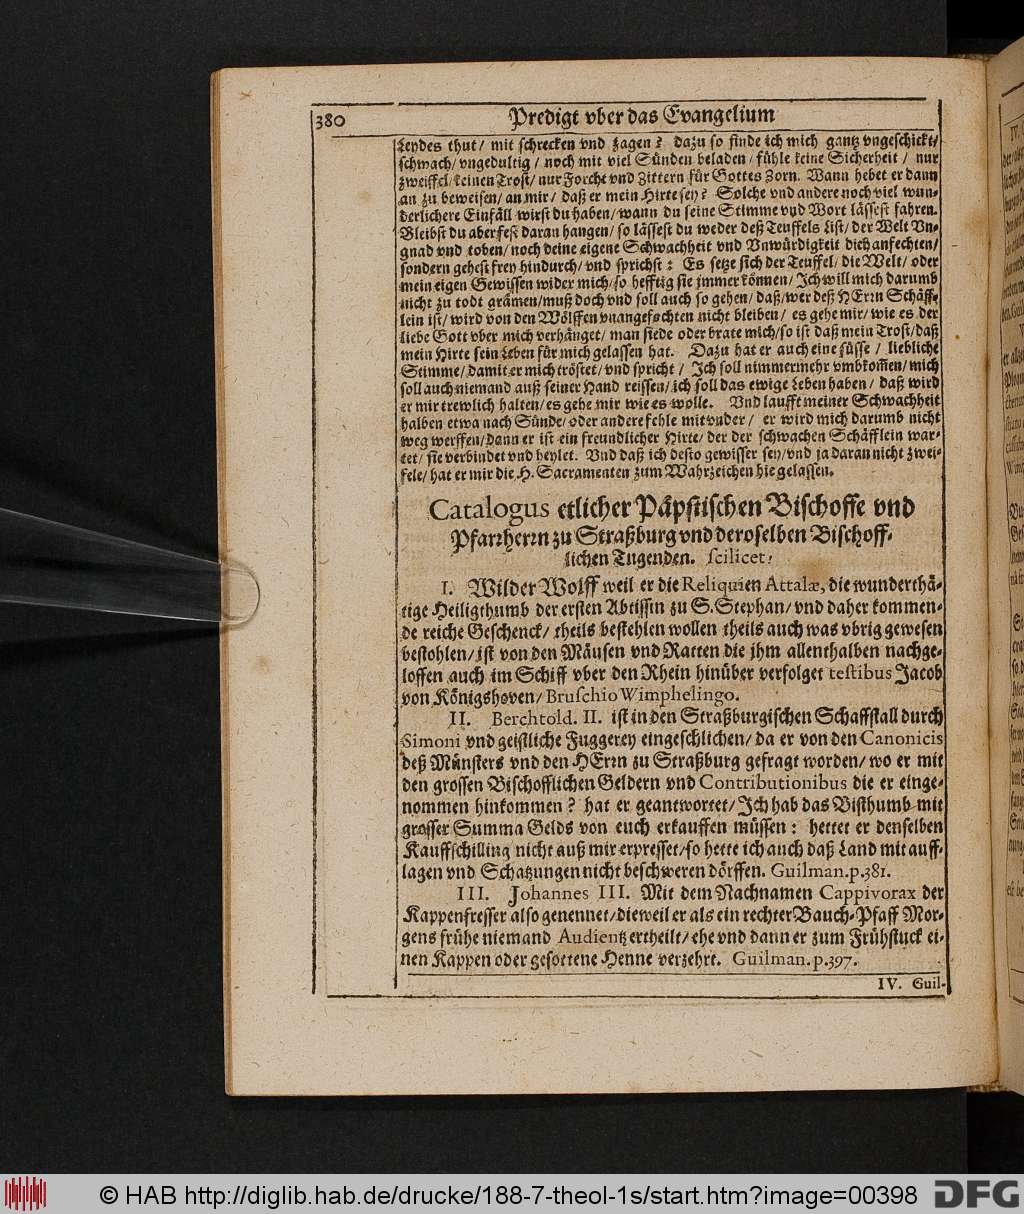 380
Predigt vber das Evangelium
Leydes thut / mit schrecken vnd zagen? dazu so finde ich mich gantz vngeschickt /
schwach / vngedultig / noch mit viel Sünden beladen / fühle keine Sicherheit / nur
zweiffel / keinen Trost / nur Forcht vnd Zittern für Gottes Zorn. Wann hebet er dann
an zu beweisen / an mir / daß er mein Hirte sey? Solche vnd andere noch viel wun-
derlichere Einfäll wirst du haben / wann du seine Stimme vnd Wort lässest fahren.
Bleibst du aber fest daran hangen / so lässest du weder deß Teuffels List / der Welt Vn-
gnad vnd toben / noch deine eigene Schwachheit vnd Vnwürdigkeit dich anfechten /
sondern gehest frey hindurch / vnd sprichst: Es setze sich der Teuffel / die Welt / oder
mein eigen Gewissen wider mich / so hefftig sie jmmer können / Ich will mich darumb
nicht zu todt grämen / muß doch vnd soll auch so gehen / daß / wer deß HErrn Schäff-
lein ist / wird von den Wölffen vnangefochten nicht bleiben / es gehe mir / wie es der
liebe Gott vber mich verhänget / man siede oder brate mich / so ist daß mein Trost / daß
mein Hirte sein Leben für mich gelassen hat. Dazu hat er auch eine süsse / liebliche
Stimme / damit er mich tröstet / vnd spricht / Ich soll nimmermehr vmbkom̃en / mich
soll auch niemand auß seiner Hand reissen / ich soll das ewige Leben haben / daß wird
er mir trewlich halten / es gehe mir wie es wolle. Vnd laufft meiner Schwachheit
halben etwa nach Sünde / oder andere fehle mit vnder / er wird mich darumb nicht
weg werffen / Dann er ist ein freundlicher Hirte / der der schwachen Schäfflein war-
tet / sie verbindet vnd heylet. Vnd daß ich desto gewisser sey / vnd ja daran nicht zwei-
fele / hat er mir die H. Sacramenten zum Wahrzeichen hie gelassen.
Catalogus etlicher Päpstischen Bischoffe vnd
Pfarrherrn zu Straßburg vnd deroselben Bischoff-
lichen Tugenden. scilicet,
I. Wilder Wolff weil er die Reliquien Attalæ, die wunderthä-
tige Heiligthumb der ersten Abtissin zu S. Stephan / vnd daher kommen-
de reiche Geschenck / theils bestehlen wollen theils auch was vbrig gewesen
bestohlen / ist von den Mäusen vnd Ratten die jhm allenthalben nachge-
loffen auch im Schiff vber den Rhein hinüber verfolget testibus Jacob
von Königshoven / Bruschio Wimphelingo.
II. Berchtold. II. ist in den Straßburgischen Schaffstall durch
Simoni vnd geistliche Fuggerey eingeschlichen / da er von den Canonicis
deß Münsters vnd den HErrn zu Straßburg gefragt worden / wo er mit
den grossen Bischofflichen Geldern vnd Contributionibus die er einge-
nommen hinkommen? hat er geantwortet / Ich hab das Bisthumb mit
grosser Summa Gelds von euch erkauffen müssen: hettet er denselben
Kauffschilling nicht auß mir erpresset / so hette ich auch daß Land mit auff-
lagen vnd Schatzungen nicht beschweren dörffen. Guilman. p. 381.
III. Johannes III. Mit dem Nachnamen Cappivorax der
Kappenfresser also genennet / dieweil er als ein rechter Bauch-Pfaff Mor-
gens frühe niemand Audientz ertheilt / ehe vnd dann er zum Frühstuck ei-
nen Kappen oder gesottene Henne verzehrt. Guilman. p. 397.
IV. Guil-
© HAB http://diglib.hab.de/drucke/188-7-theol-1s/start.htm?image=00398
DFG